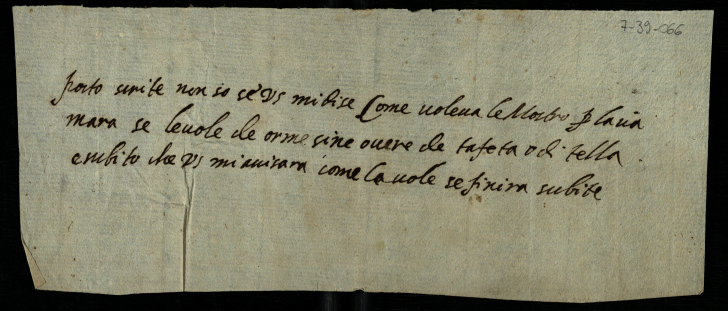 7-39-066
porto scrite non so se vs mi dise Come voleva le Mostre p la cia
mara se le vole de ormesine overe de tafeta o di tella
e subito che vs mi avisara come la vole se finira subite